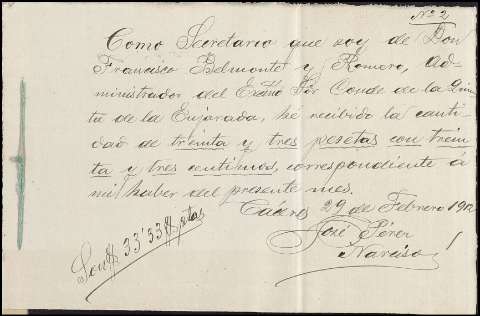 Nº 2
Como Secretario que soy de Don
Francisco Belmonte y Romero, Ad-
ministrador del Excmo Sor Conde de la Quin-
ta de la Enjarada, hé recibido la canti-
dad de treinta y tres pesetas con trein-
ta y tres centimos, correspondiente á
mi haber del presente mes.
Cáceres 29 de Febrero 1912
José Pérez
Narciso
Son # 33'33 # ptas